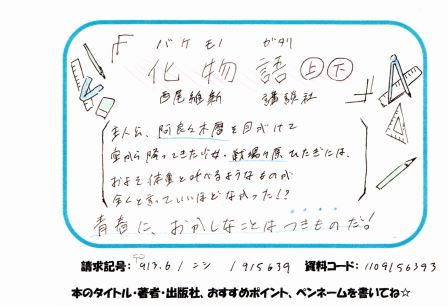 『バケモノ ガタリ
化物語 上 下 』
西尾維新 講談社
主人公、阿良々木暦を目がけて
空から降ってきた少女・戦場ヶ原ひたぎには、
およそ体重と呼べるようなものが
全くと言っていいほどなかった!?
青春に、おかしなことはつきものだ!
請求記号: 913.6/ニシ /915639 資料コード: 1109156393
本のタイトル・著者・出版社、おすすめポイント、ペンネームを書いてね☆